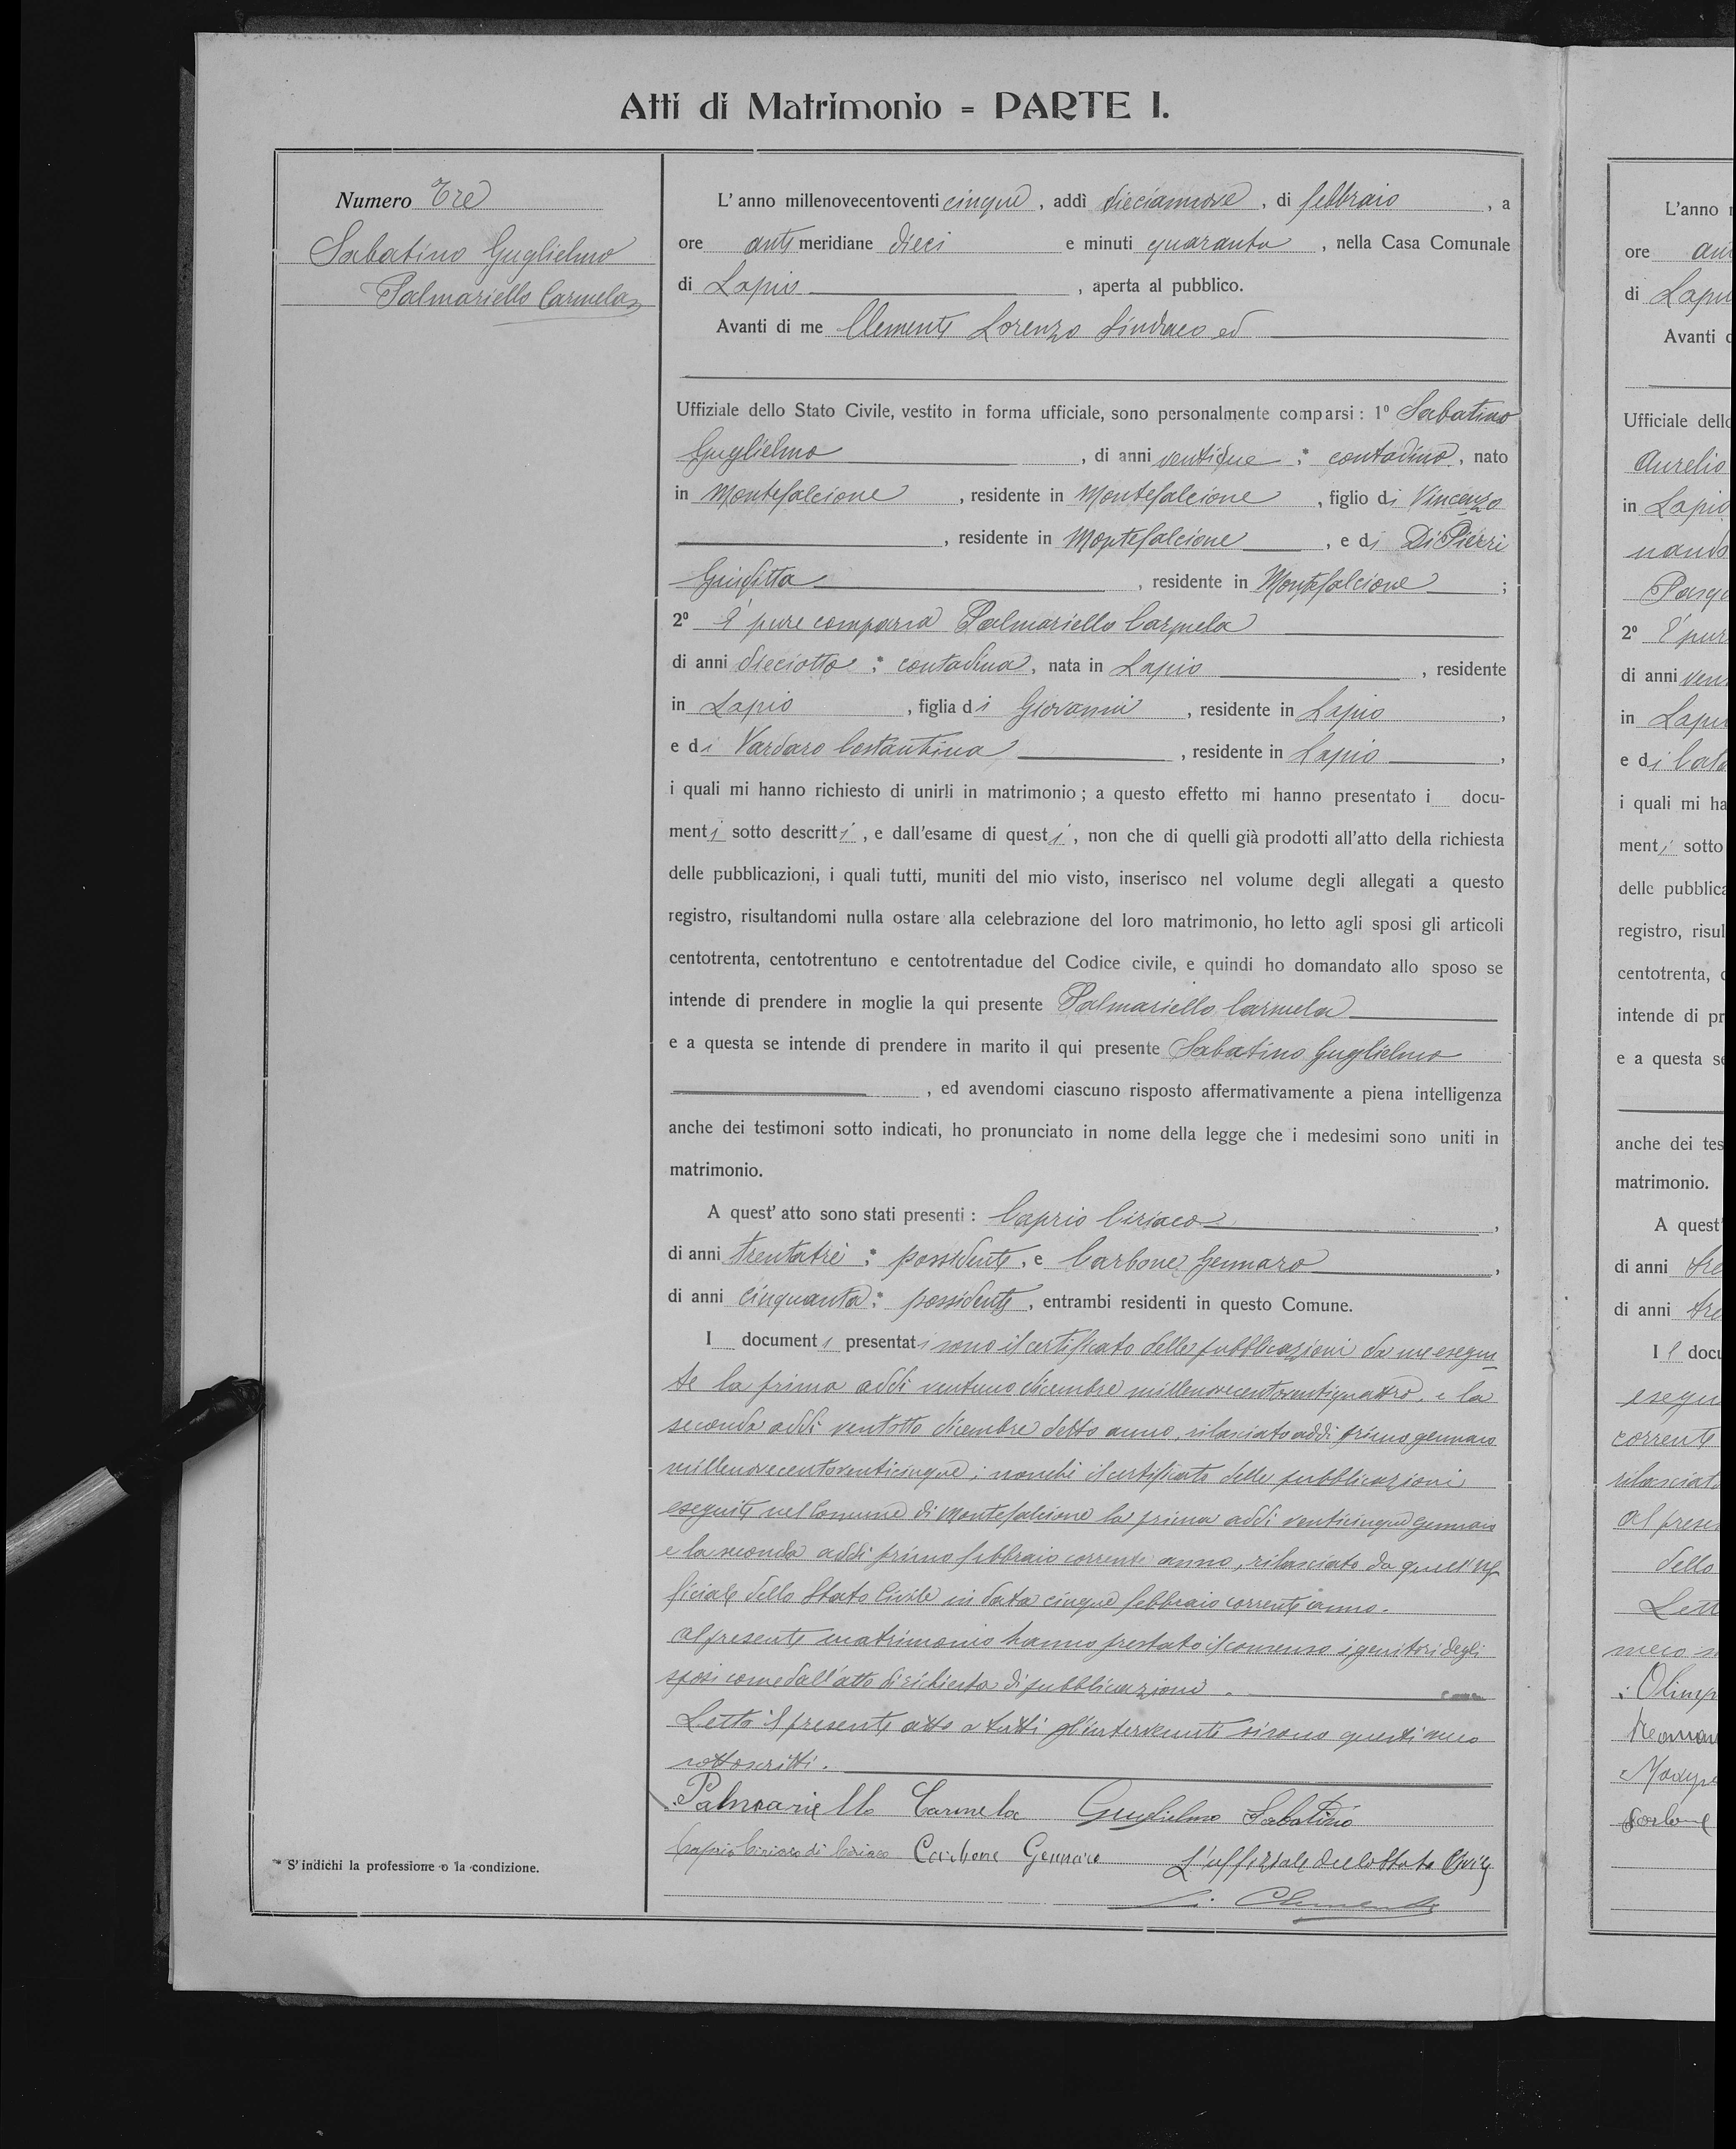 Atti di Matrimonio = PARTE I.
Numero Tre
Sabatino Guglielmo
Palmariello Carmela
L'anno millenovecentoventi cinque, addì dieciannove, di febbraio, a
ore anti meridiane dieci e minuti quaranta, nella Casa Comunale
di Lapio, aperta al pubblico.
Avanti di me Clemente Lorenzo Sindaco ed
Uffiziale dello Stato Civile, vestito in forma ufficiale, sono personalmente comparsi: 1º Sabatino
Guglielmo, di anni ventidue; * contadino, nato
in Montefalcione, residente in Montefalcione, figlio di Vincenzo
, residente in Montefalcione, e di Di Pierri
Giuditta, residente in Montefalcione;
2º È pure comparsa Palmariello Carmela
di anni dieciotto; * contadina, nata in Lapio, residente
in Lapio, figlia di Giovanni, residente in Lapio,
e di Vardaro Costantina, residente in Lapio,
i quali mi hanno richiesto di unirli in matrimonio; a questo effetto mi hanno presentato i docu-
menti sotto descritti, e dall'esame di questi, non che di quelli già prodotti all'atto della richiesta
delle pubblicazioni, i quali tutti, muniti del mio visto, inserisco nel volume degli allegati a questo
registro, risultandomi nulla ostare alla celebrazione del loro matrimonio, ho letto agli sposi gli articoli
centotrenta, centotrentuno e centotrentadue del Codice civile, e quindi ho domandato allo sposo se
intende di prendere in moglie la qui presente Palmariello Carmela
e a questa se intende di prendere in marito il qui presente Sabatino Guglielmo
, ed avendomi ciascuno risposto affermativamente a piena intelligenza
anche dei testimoni sotto indicati, ho pronunciato in nome della legge che i medesimi sono uniti in
matrimonio.
A quest'atto sono stati presenti: Caprio Ciriaco,
di anni trentatrè; * possidente, e Carbone Gennaro,
di anni cinquanta; * possidente, entrambi residenti in questo Comune.
I documenti presentati sono il certificato delle pubblicazioni da me esegui
te la prima addì ventuno dicembre millenovecentoventiquattro, e la
seconda addì ventotto dicembre detto anno, rilasciato addì primo gennaio
millenovecentoventicinque; nonchè il certificato delle pubblicazioni
eseguite nel Comune di Montefalcione la prima addì venticinque gennaio
e la seconda addì primo febbraio corrente anno, rilasciato da quell'Uf
ficiale dello Stato Civile in data cinque febbraio corrente anno.
Al presente matrimonio hanno prestato il consenso i genitori degli
sposi come dall'atto di richiesta di pubblicazione.
Letto il presente atto a tutti gl'intervenuti si sono questi meco
sottoscritti.
Palmariello Carmela Guglielmo Sabatino
Caprio Ciriaco di Ciriaco Carbone Gennaro L'uffiziale dello Stato Civile
L. Clemente
* S'indichi la professione o la condizione.
L'anno
ore an
di Lapi
Avanti
Ufficiale dello
Aurelio
in Lapio
nando
Pasqu
2º È pur
di anni ven
in Lapi
e di Cat
i quali mi ha
menti sotto
delle pubblica
registro, risul
centotrenta,
intende di pr
e a questa se
anche dei tes
matrimonio.
A quest'
di anni tre
di anni tre
Il docu
esegui
corrente
rilasciat
al prese
dello
Lett
meco
Olimp